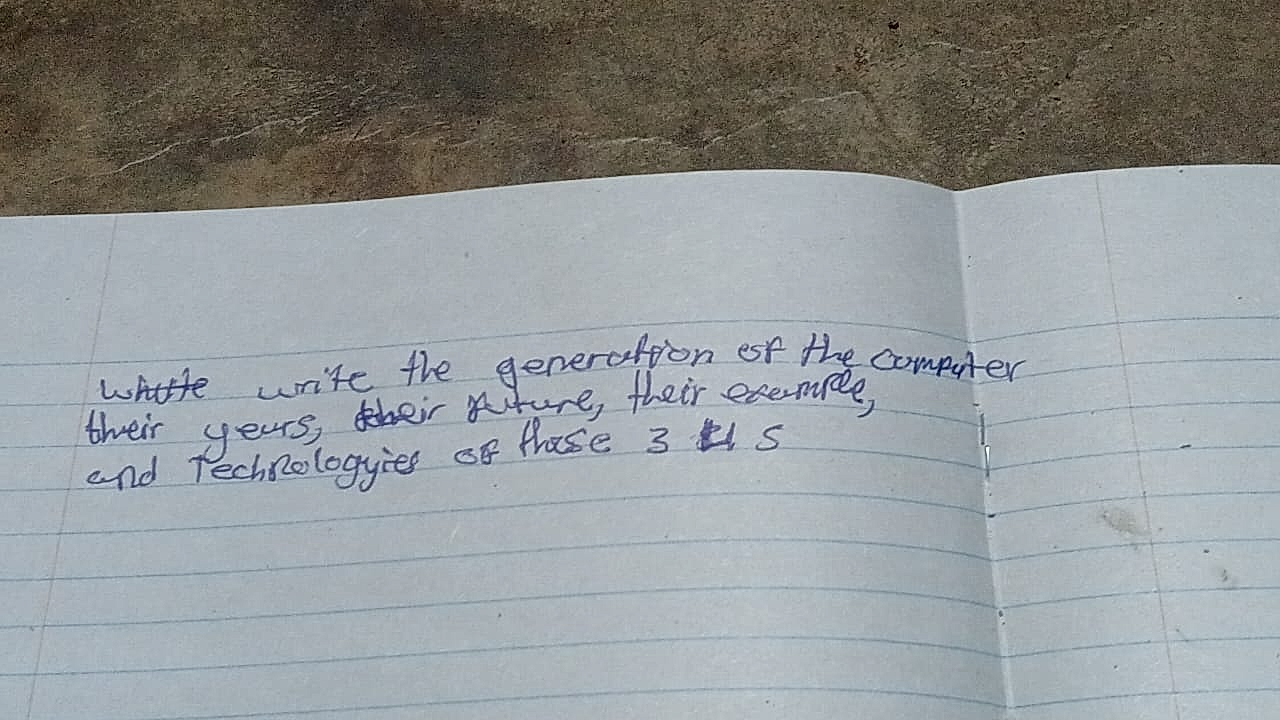 write the generation of the computer
their years, their future, their example,
and Technologyies of those 3 4 5